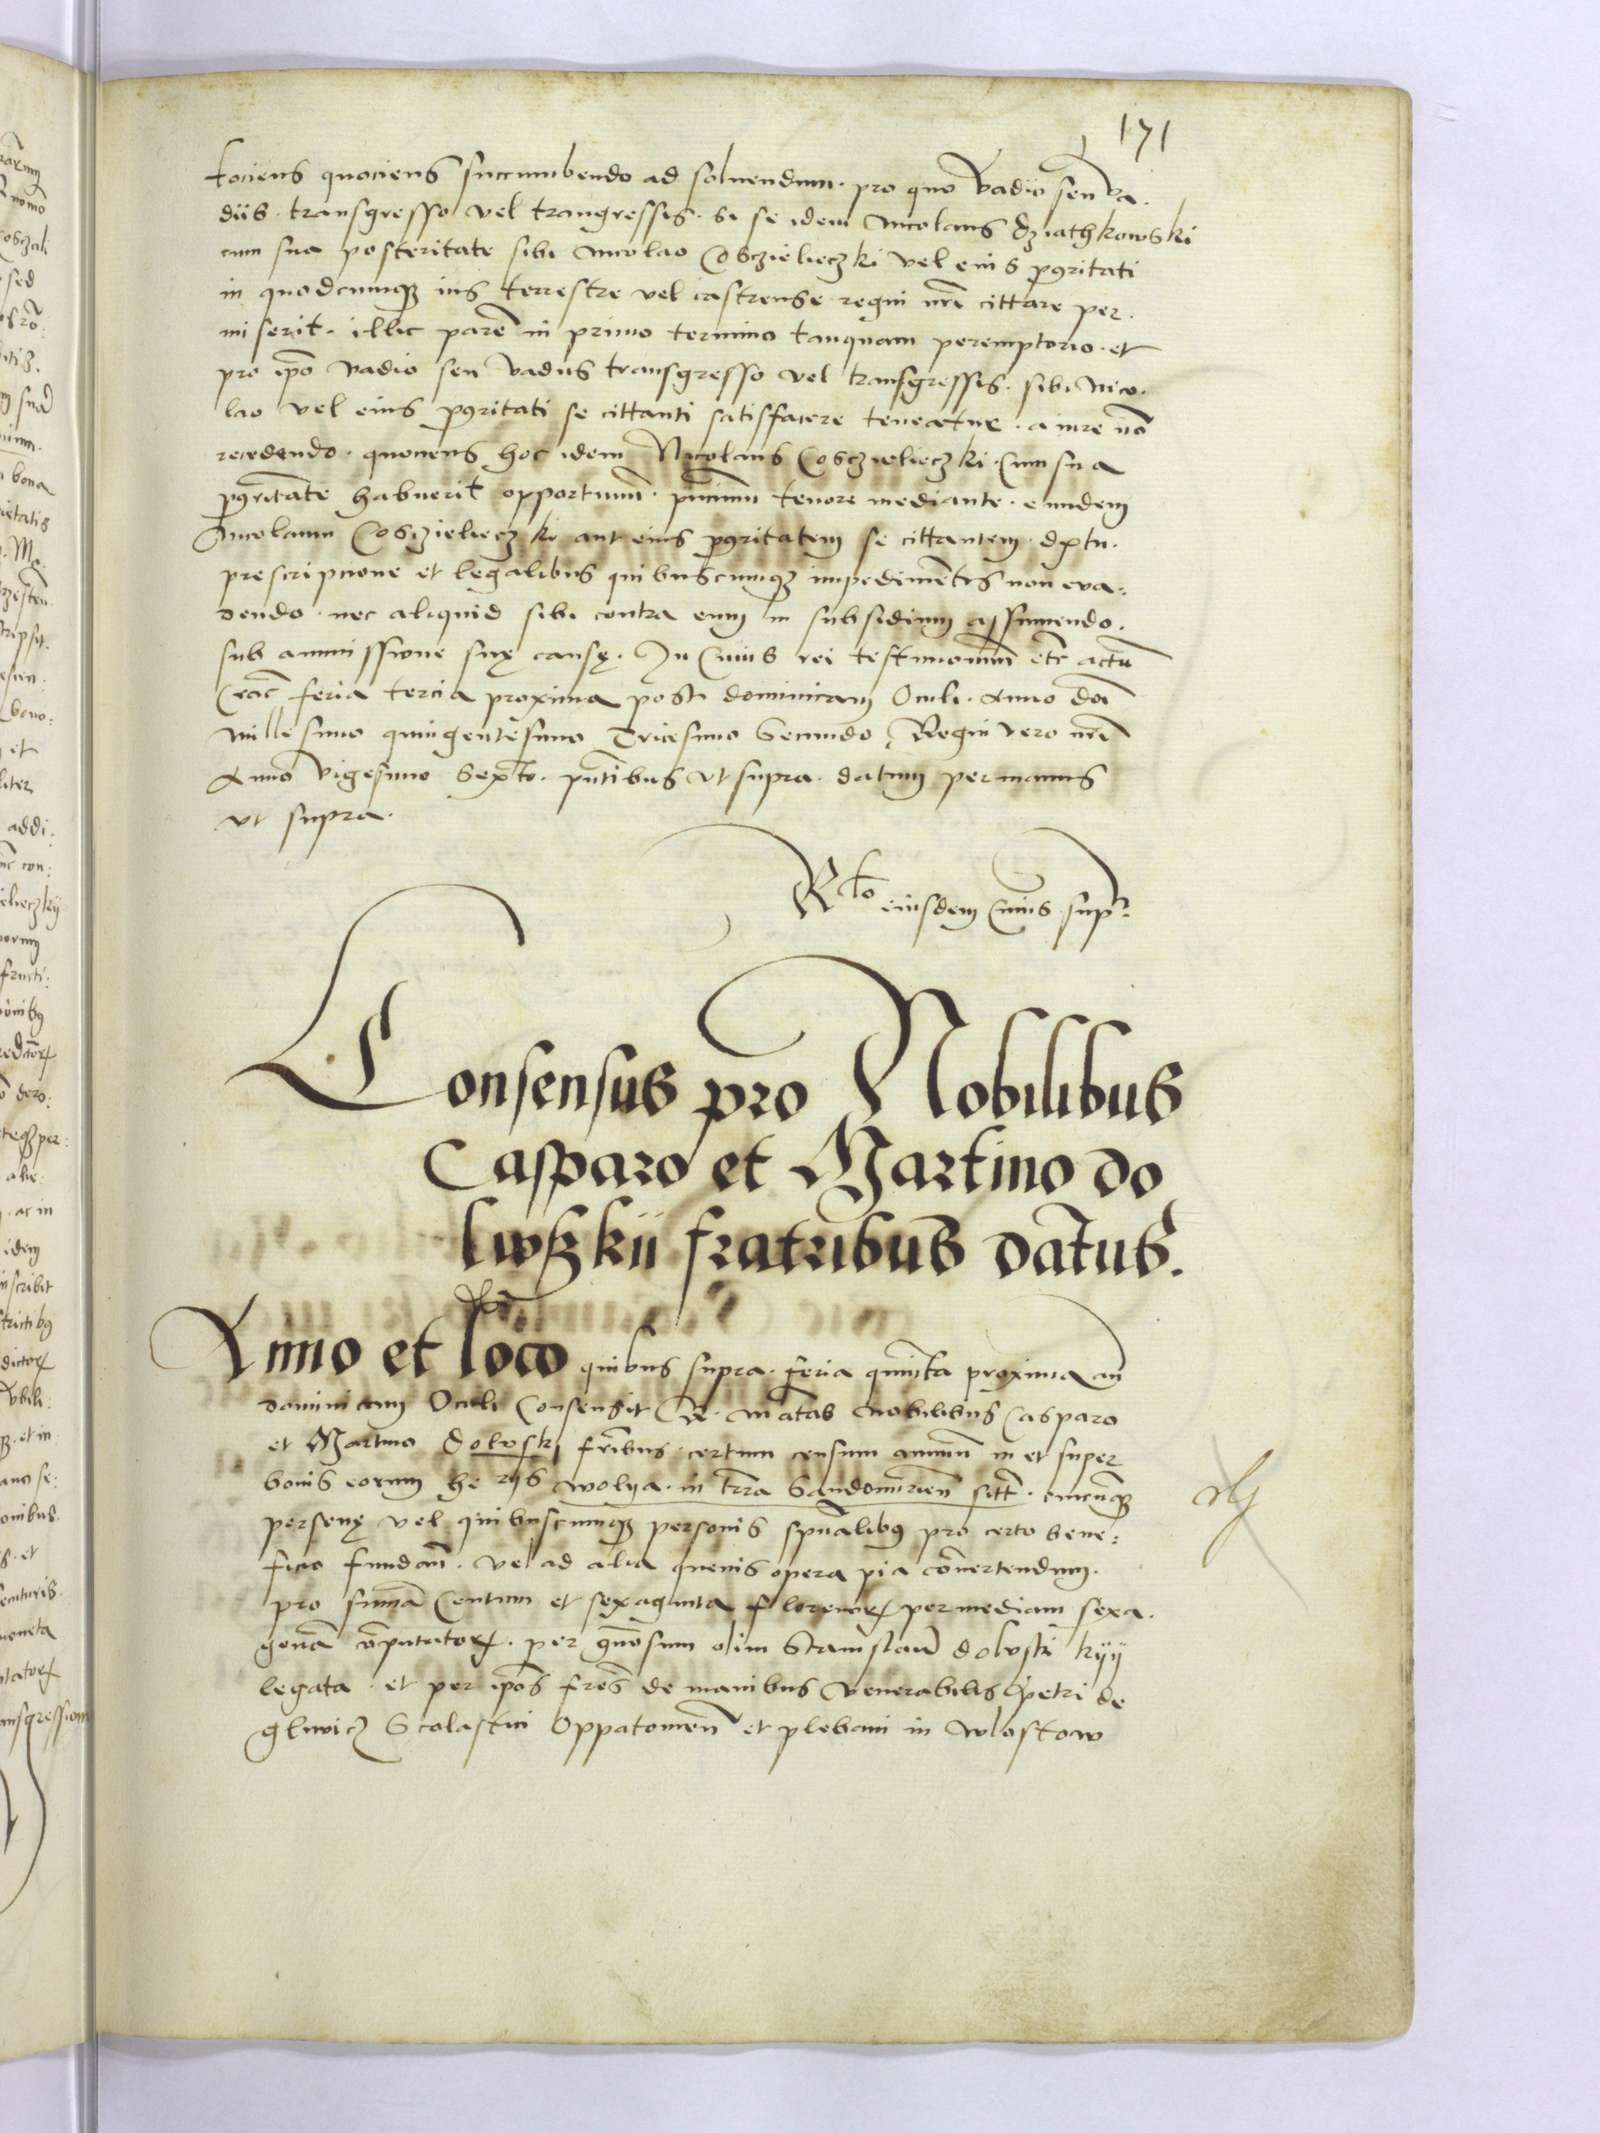 171
tociens quociens succumbendo ad soluendum. pro quo vadio seu va.
diis. transgresso vel trangressis. si se idem Nicolaus Dziathkowski
cum sua posteritate sibi Nicolao Coszieleczki vel eius pͦritati
in quodcumqꝫ ius terrestre vel castrense regni nr̄i cittare per.
miserit. illic parē in primo termino tanquam peremptorio. et
pro ip̄o vadio seu vadiis transgresso vel transgressis. sibi Nico.
lao vel eius pͦritati se cittanti satisfacere teneatur. a iure nō
recedendo. quociens hoc idem Nicolaus Coszieleczki. cum sua
pͦritate habuerit opportunū. pn̄cium tenore mediante. eundem
Nicolaum Cosczieleczki aut eius pͦritatem se cittantem.
prescripcione et legalibus quibuscumqꝫ impedimētis non eva.
dendo. nec aliquid sibi contra eum in subsidium assumendo.
sub ammissione suę causę. In Cuius rei testimonium etc̄ actū
feria tercia proxima post dominicam Oculi. Anno dn̄i
millesimo quingentesimo Tricesimo Secundo. Regni vero nr̄i
Anno vigesimo Sexto. pn̄tibus vt supra. datum per manus
vt supra.
Rᵗⁱᵒ eiusdem cuius supᵃ.
Consensus pro Nobilibus
Casparo et Martino do
lwskii fratribus datus.
Anno et loco quibus supra. feria quinta proxima an̄
dominicam Oculi Consensit R. Mātas Nobilibus Casparo
et Martino Dolwski fr̄ibus. certum censum annuū in et super
bonis eorum here͏̄iis Wolya. in tr̄ra Sandomirien̄ sitt̄. cuicūqꝫ
personę vel quibuscumqꝫ personis spūalibꝰ pro certo bene.
ficio fundan̄. vel ad alia quevis opera pia cōvertendum.
pro summa Centum et sexaginta florenoꝝ per mediam sexa.
genā cōputatoꝝ. per gn̄osum olim Stanislaū Dolwskyy
legata. et per ip̄os fr̄es de manibus venerabilis petri de
glivicz Scolastici Oppatovien̄ et plebani in Wlostow